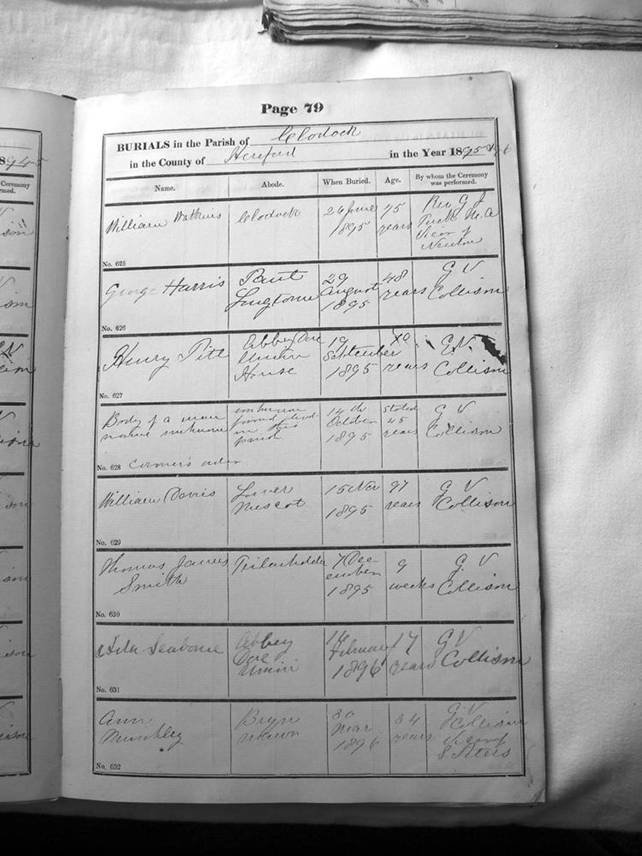 Page 79
BURIALS in the Parish of Clodock
in the County of Hereford in the Year 1895 &
Name. Abode. When Buried. Age. By whom the Ceremony was performed.
William Watkins Clodock 26 June 1895 75 years Rev G
M.A
Vicar of
Newton
No. 625
George Harris Longtown 29 August 1895 48 years G V Collison
No. 626
Henry Pitt Abbey Dore Union House 19 September 1895 years G V Collison
No. 627
Body of a man name unknown unknown found dead in this parish 14th October 1895 Stated 45 years G V Collison
No. 628 Coroner's order
William Davis Lower 15 Nov 1895 97 years G V Collison
No. 629
Thomas James Smith 7 December 1895 9 weeks G V Collison
No. 630
Seaborne Abbey Dore Union 14 February 1896 17 years G V Collison
No. 631
Ann Bryn 30 Mar 1896 34 years G V Collison
No. 632
Ceremony
rmed.